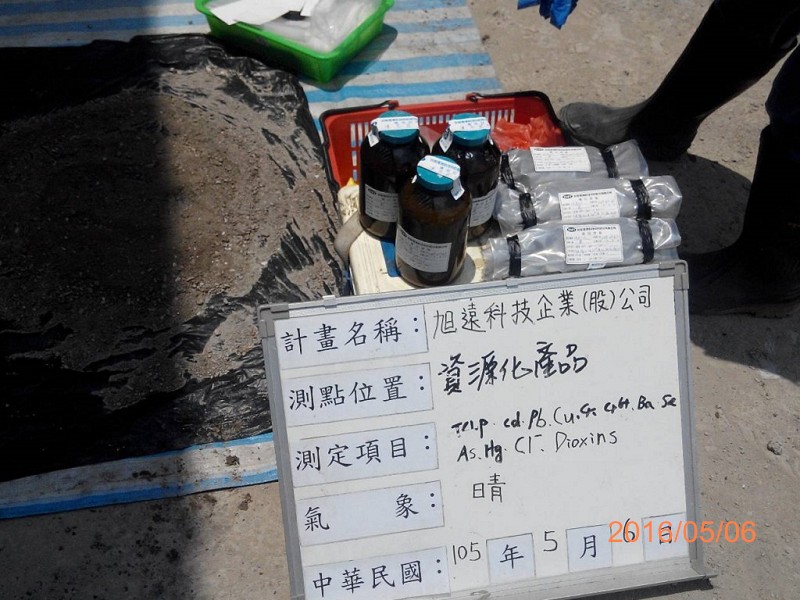 計畫名稱： 旭遠科技企業(股)公司
測點位置： 資源化產品
測定項目： TCLP. Cd. Pb. Cu. Cr. Cr6+. Ba Se
As. Hg. Cl-. Dioxins
氣 象： 晴
中華民國： 105 年 5 月 6 日
2016/05/06